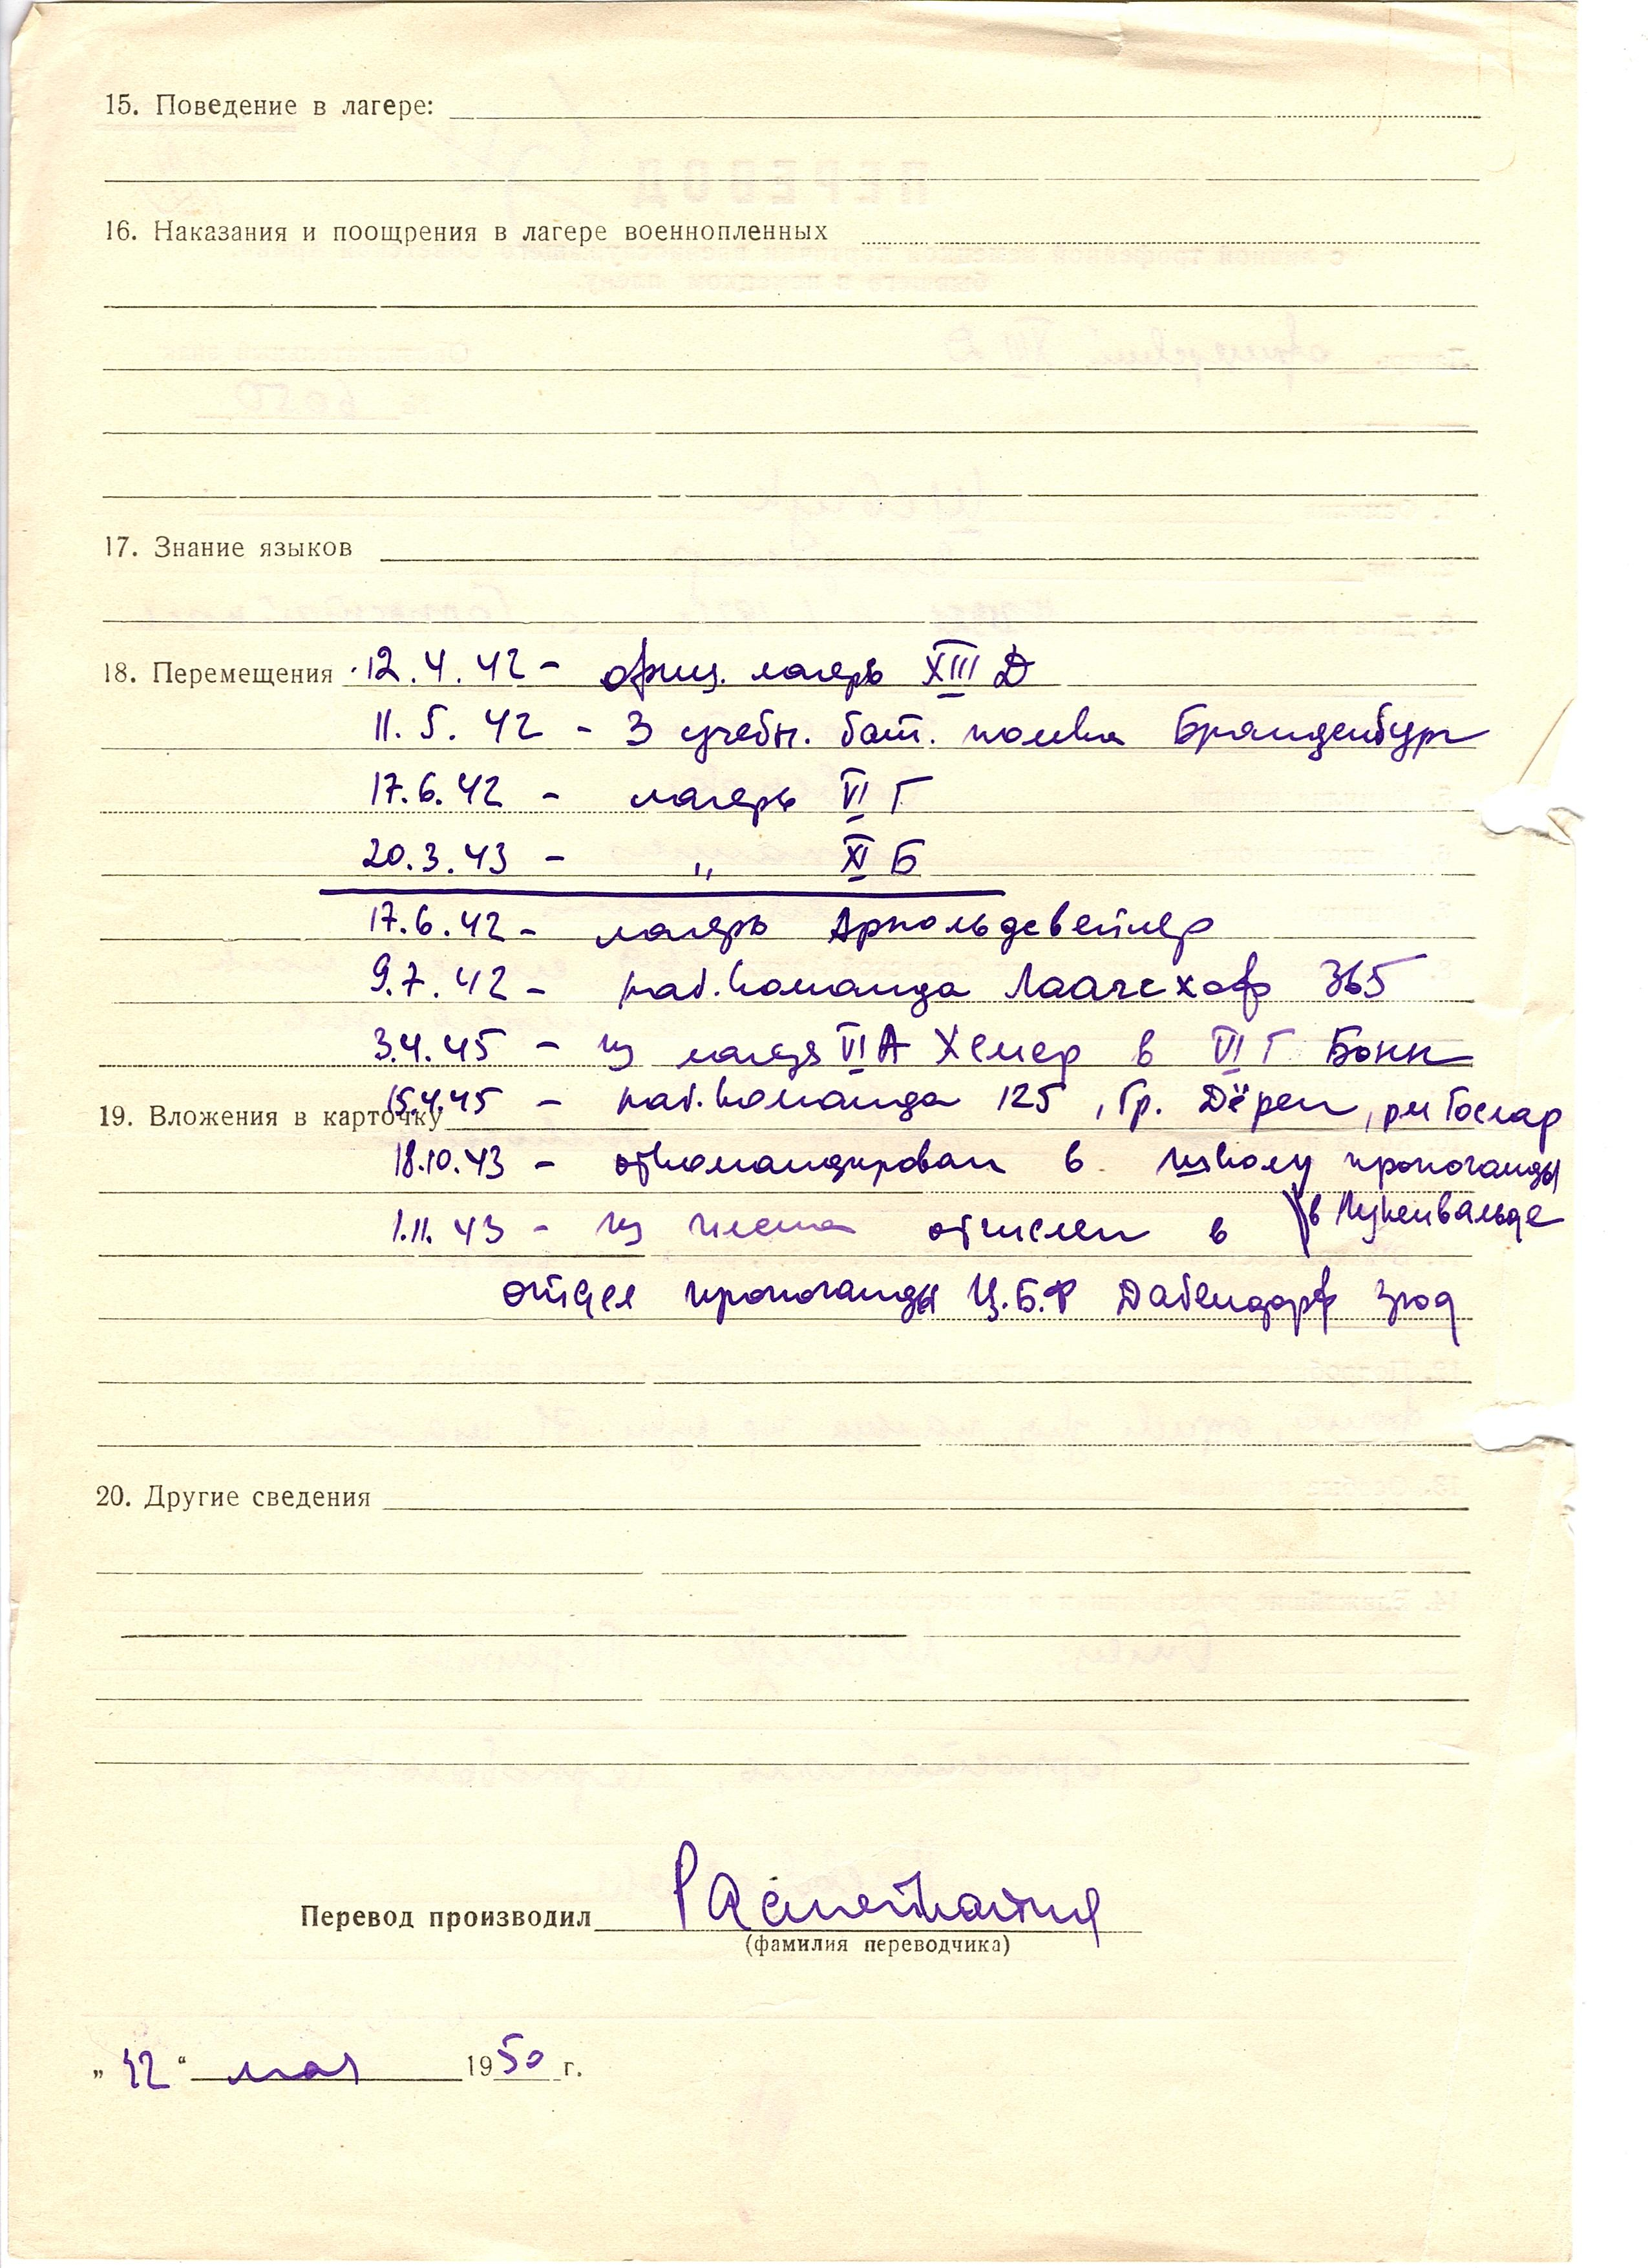 15. Поведение в лагере:
16. Наказания и поощрения в лагере военнопленных
17. Знание языков
18. Перемещения 12.4.42 – офиц. лагерь XIII Д
11.5.42 – 3 учебн. бат. полка Бранденбург
17.6.42 – лагерь VI Г
20.3.43 – „ XI Б
17.6.42 – лагерь Арнольдсвейлер
9.7.42 – раб. команда Лаагсхоф 365
3.4.45 – из лагеря VI А Хемер в VI Г Бонн
15.4.45 – раб. команда 125, Гр. Дёрен, Гослар
19. Вложения в карточку
18.10.43 – откомандирован в школу пропоганды
в Лукенвальде
1.11.43 – из плена отчислен в
отдел пропоганды Ц.Б.Ф Дабендорф
20. Другие сведения
Перевод производил
(фамилия переводчика)
„12“ мая 1950 г.